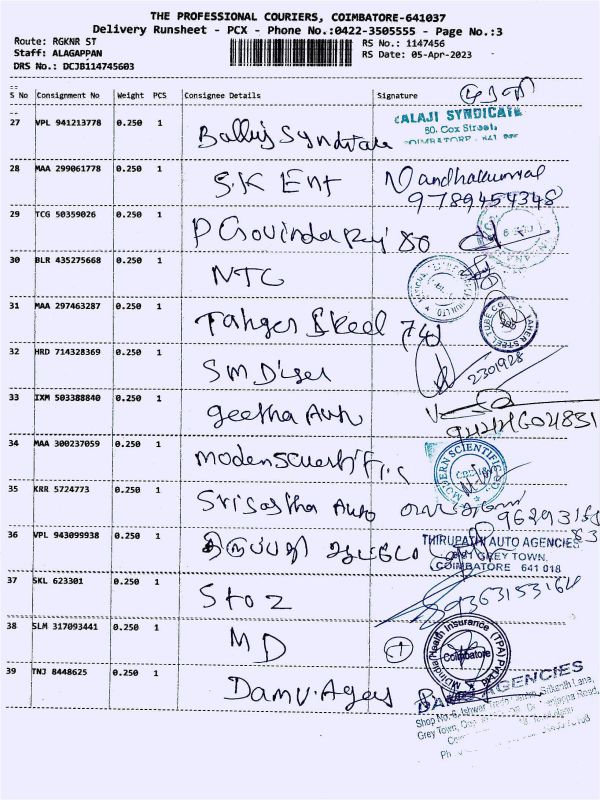 THE PROFESSIONAL COURIERS, COIMBATORE-641037
Delivery Runsheet - PCX - Phone No.:0422-3505555 - Page No.:3
Route: RGKNR ST
RS No.: 1147456
Staff: ALAGAPPAN
RS Date: 05-Apr-2023
DRS No.: DCJB114745603
S No Consignment No Weight PCS Consignee Details Signature
27 VPL 941213778 0.250 1
ALAJI SYNDICATE
80. Cox Street,
28 MAA 299061778 0.250 1 S.K Ent
9789454348
29 TCG 50359026 0.250 1 P Govinda Raj 80
30 BLR 435275668 0.250 1 NTC
31 MAA 297463287 0.250 1
32 HRD 714328369 0.250 1
2301928
33 IXM 503388840 0.250 1 geetha Auto
34 MAA 300237059 0.250 1
MODERN SCIENTIFIC
35 KRR 5724773 0.250 1 Sri Sastha Auto
36 VPL 943099938 0.250 1 திருப்பதி ஆட்டோ
THIRUPATHI AUTO AGENCIES
GREY TOWN.
COIMBATORE 641 018
37 SKL 623301 0.250 1 Stoz
9363153164
38 SLM 317093441 0.250 1 MD
MDIndia Health Insurance (TPA) Pvt Ltd
Coimbatore
39 TNJ 8448625 0.250 1
AGENCIES
Grey Town,